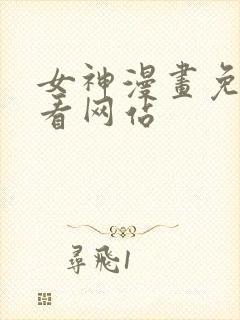 女神漫畫免
看网站
尋飛1